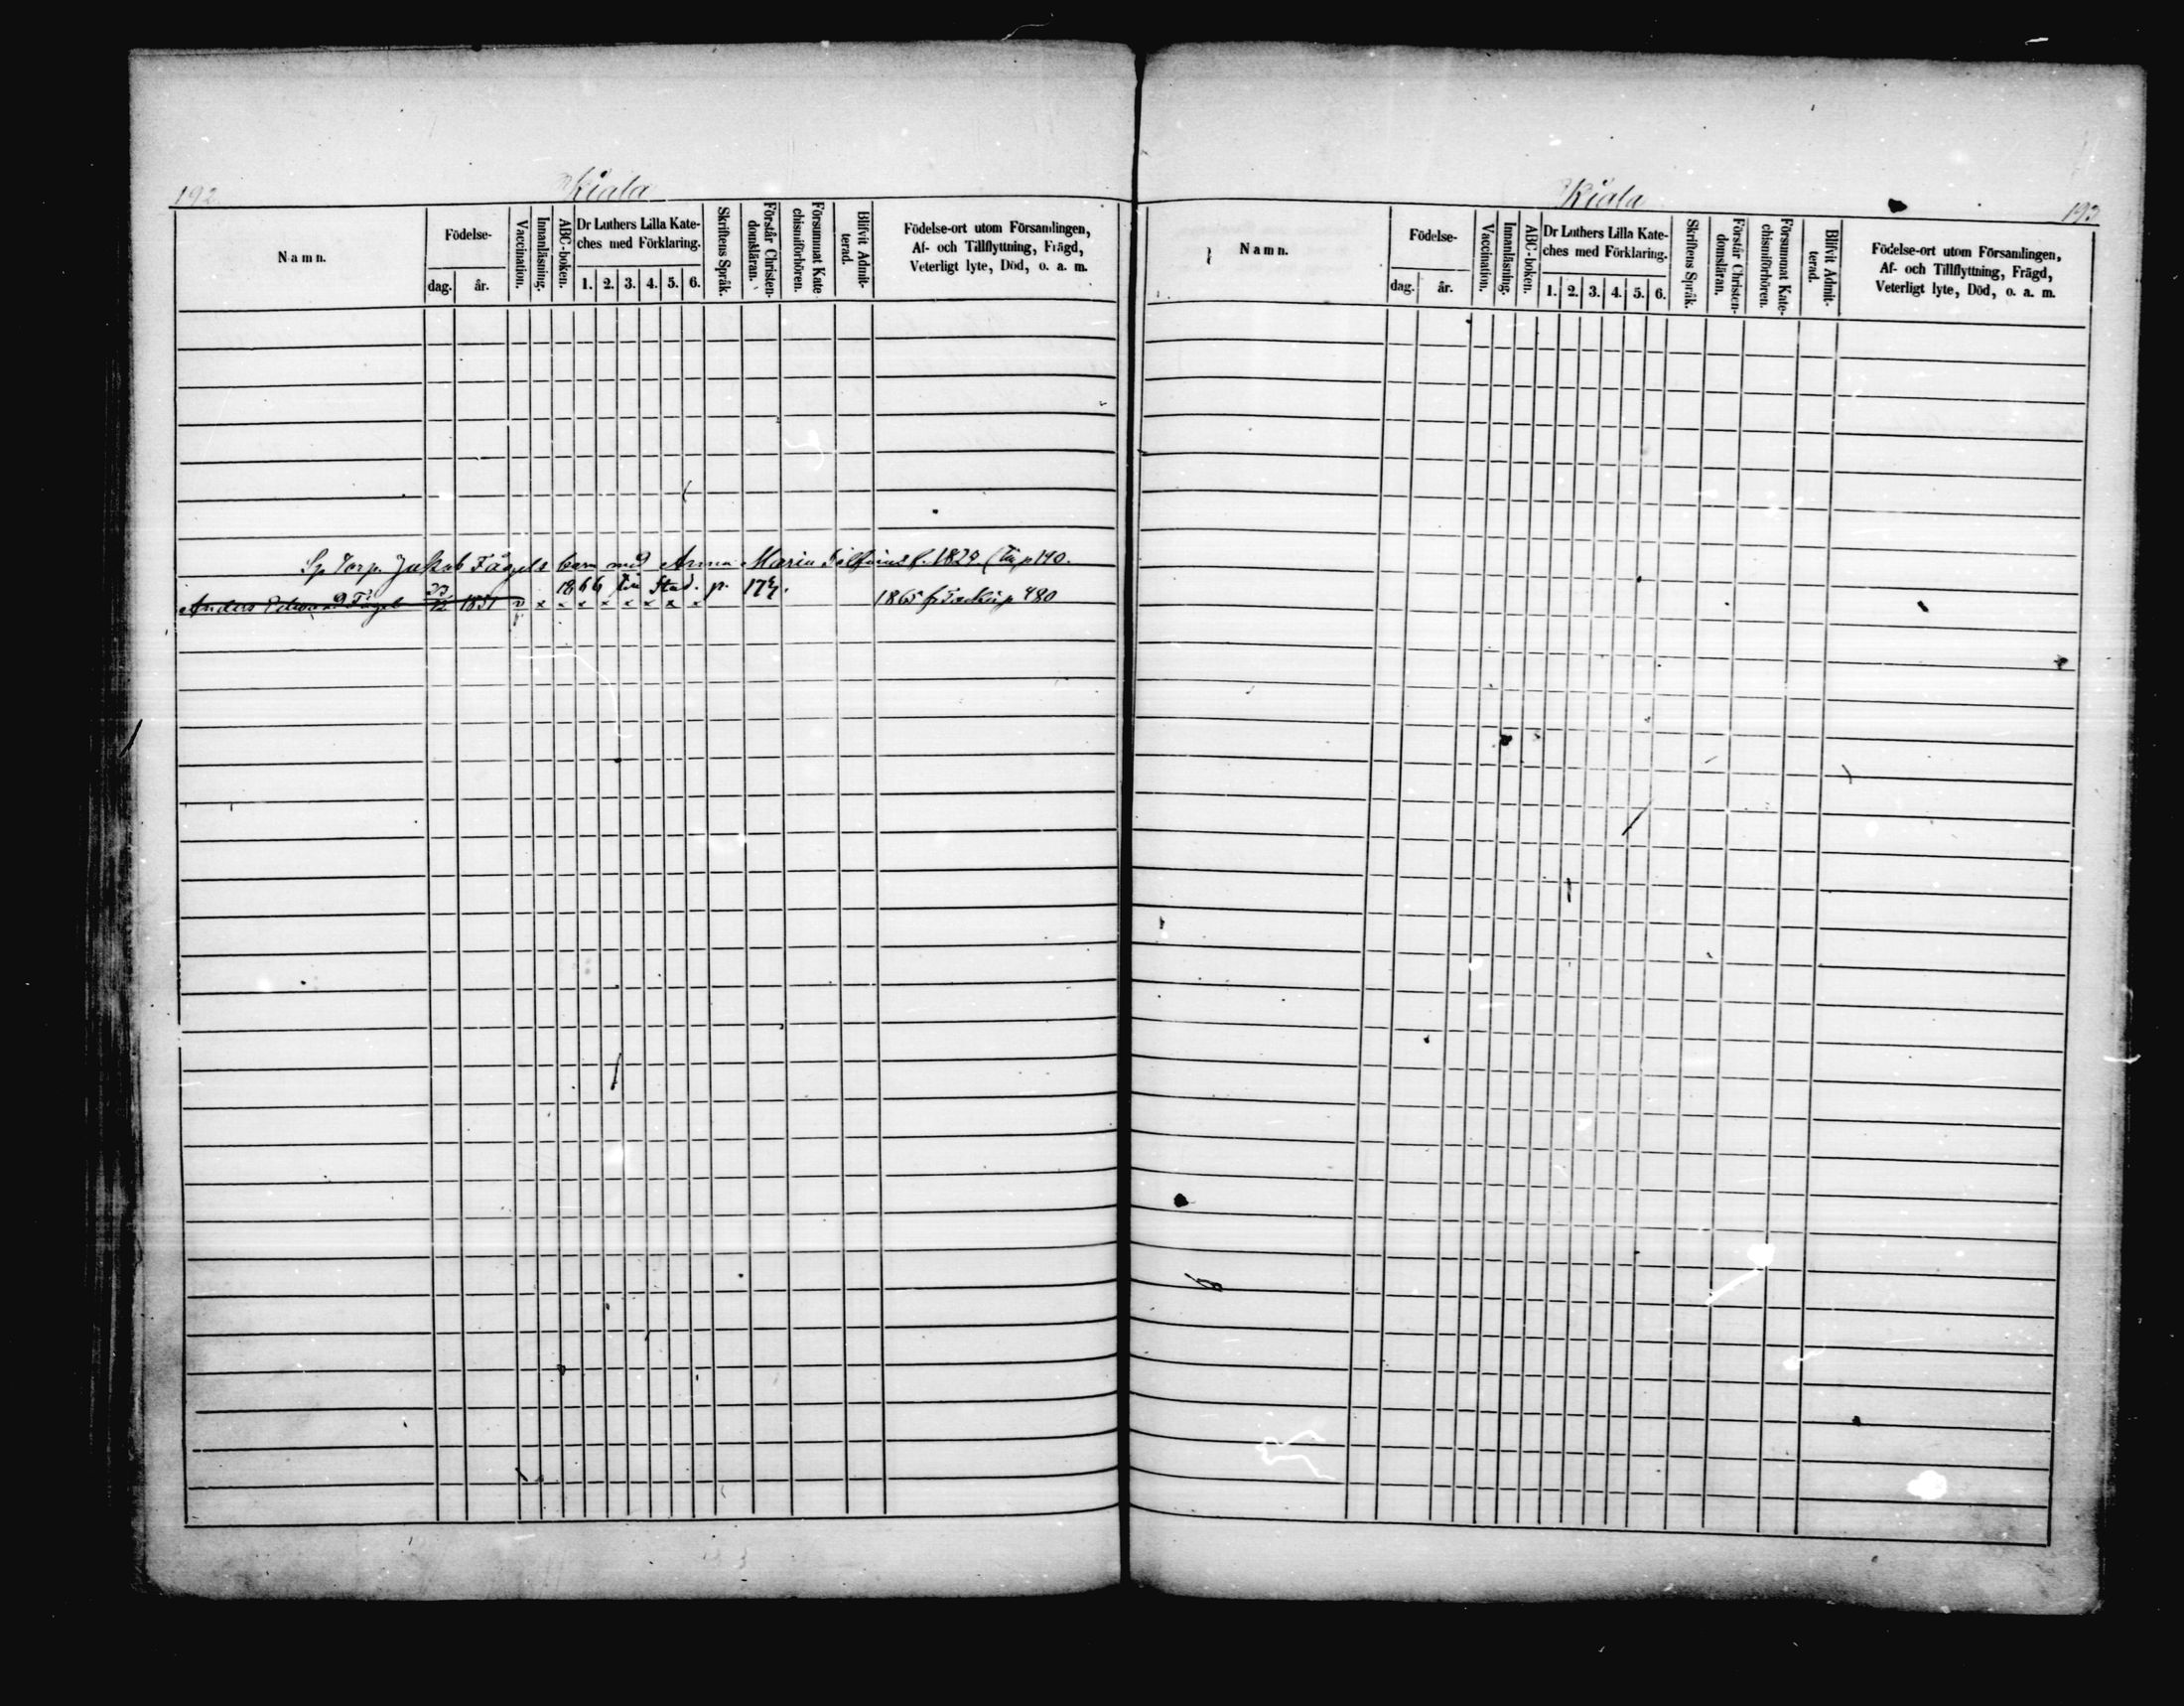 192
Kiala
Namn.
Födelse-
dag.
år.
Vaccination.
Innanläsning.
ABC-boken.
Dr Luthers Lilla Kate-
ches med Förklaring.
1. 2. 3. 4. 5. 6.
Skriftens Språk.
Förstår Christen-
domsläran.
Försummat Kate
chismiförhören.
Blifvit Admit-
terad.
Födelse-ort utom Församlingen,
Af- och Tillflyttning, Frägd,
Veterligt lyte, Död, o. a. m.
Sp. Torp. Jakob Fågels barn med Anna Maria f. 1829. (Till p 190.
1866 Till Stad. p.
Anders Edvard Fågel 1851 v x x x x x x x x 1865 fr p 480
Kiala
193
Namn.
Födelse-
dag.
år.
Vaccination.
Innanläsning.
ABC-boken.
Dr Luthers Lilla Kate-
ches med Förklaring.
1. 2. 3. 4. 5. 6.
Skriftens Språk.
Förstår Christen-
domsläran.
Försummat Kate-
chismiförhören.
Blifvit Admit-
terad.
Födelse-ort utom Församlingen,
Af- och Tillflyttning, Frägd,
Veterligt lyte, Död, o. a. m.